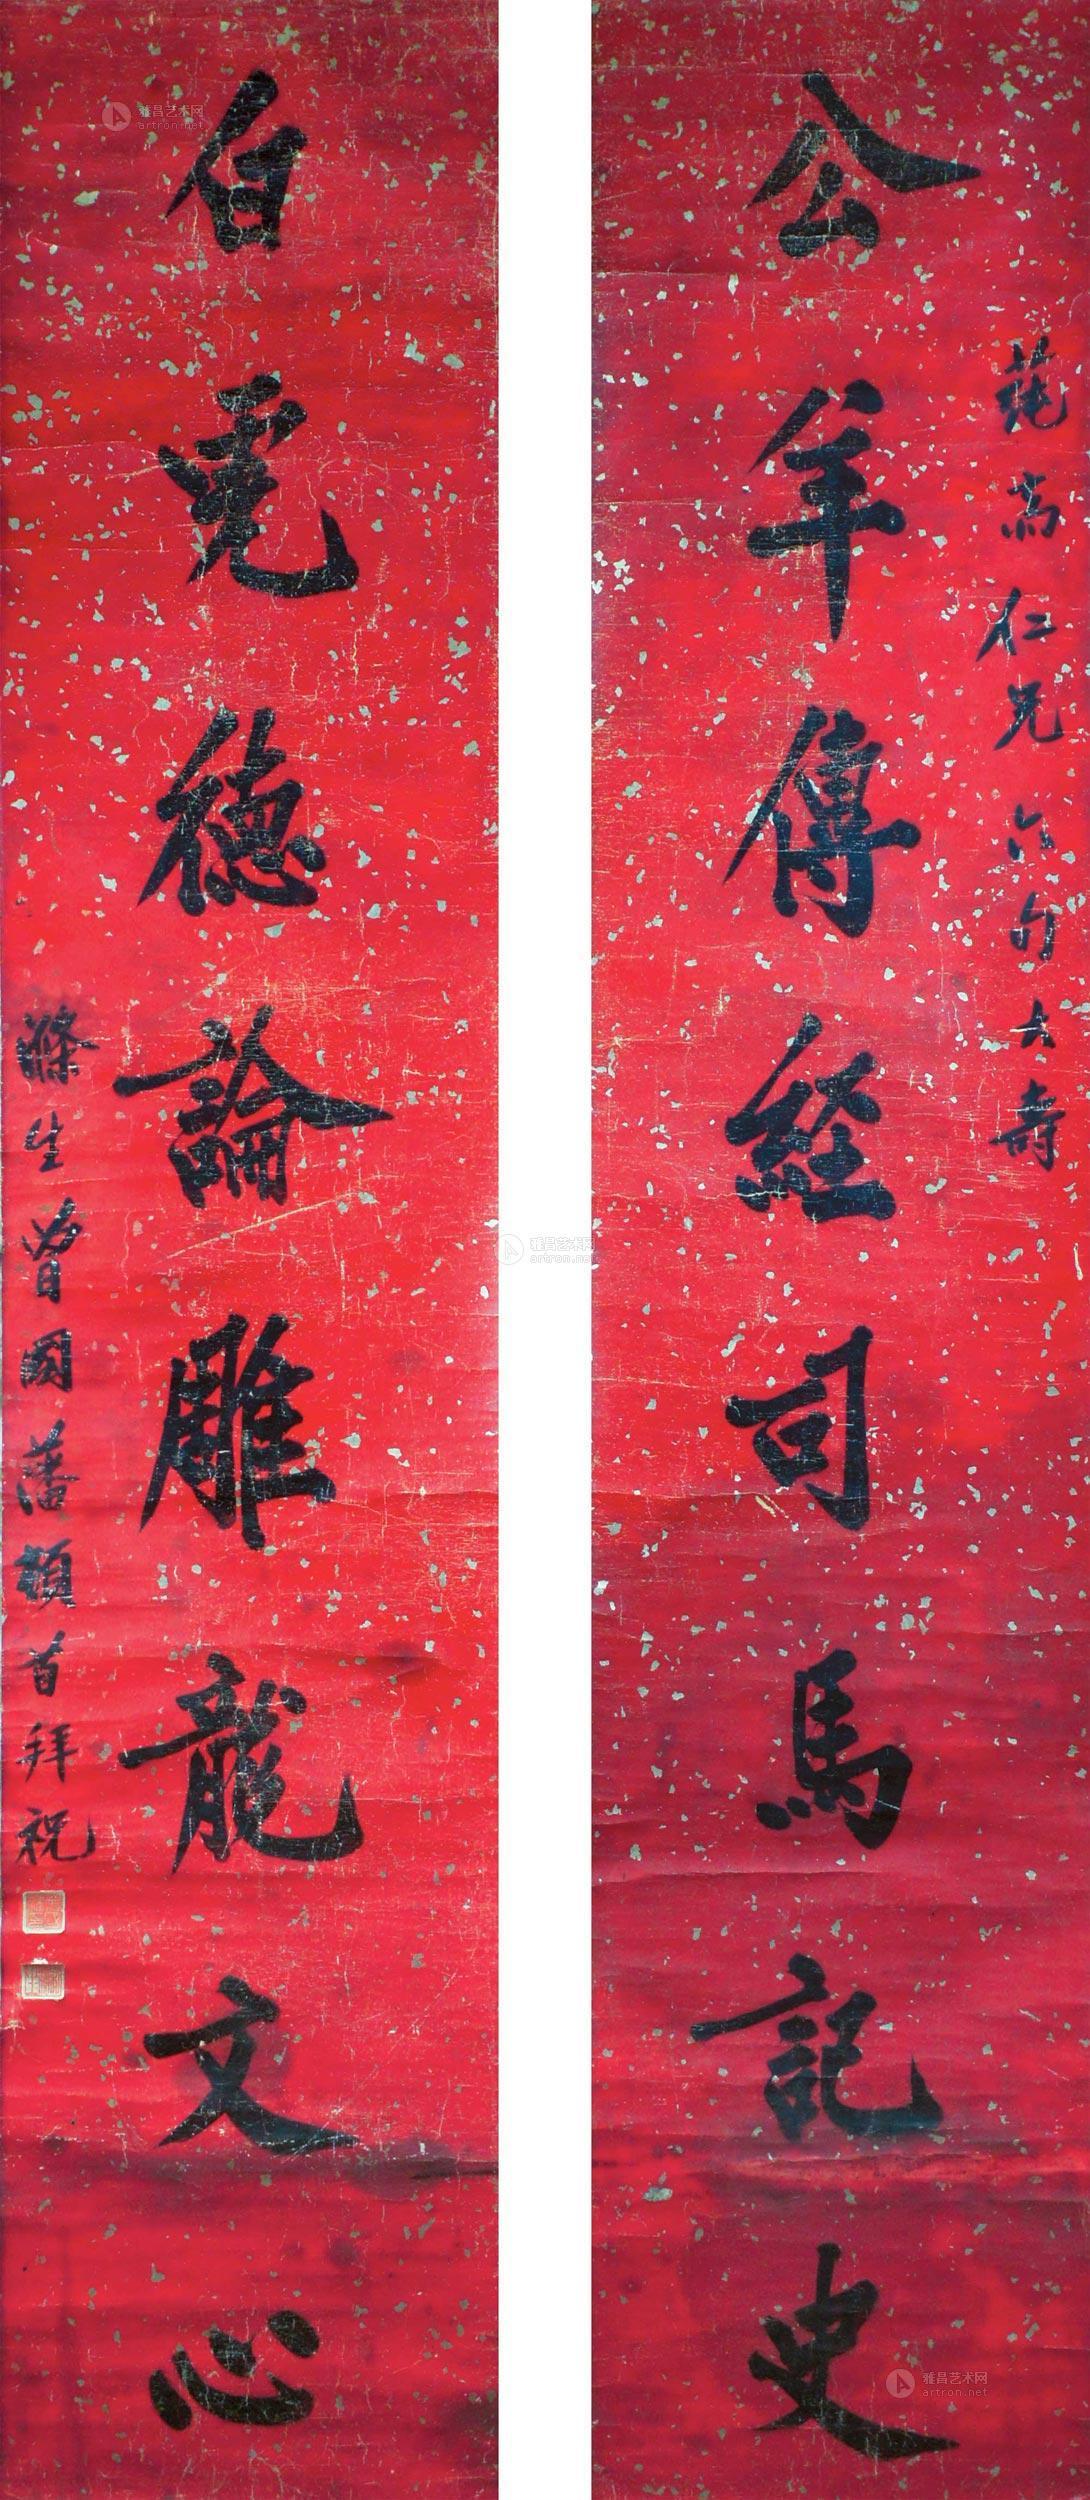 公羊傳經司馬記史
白虎德論雕龍文心
仁兄六旬大壽
滌生曾國藩頓首拜祝
雅昌艺术网
artron.net
雅昌艺术网
artron.net
雅昌艺术网
artron.net